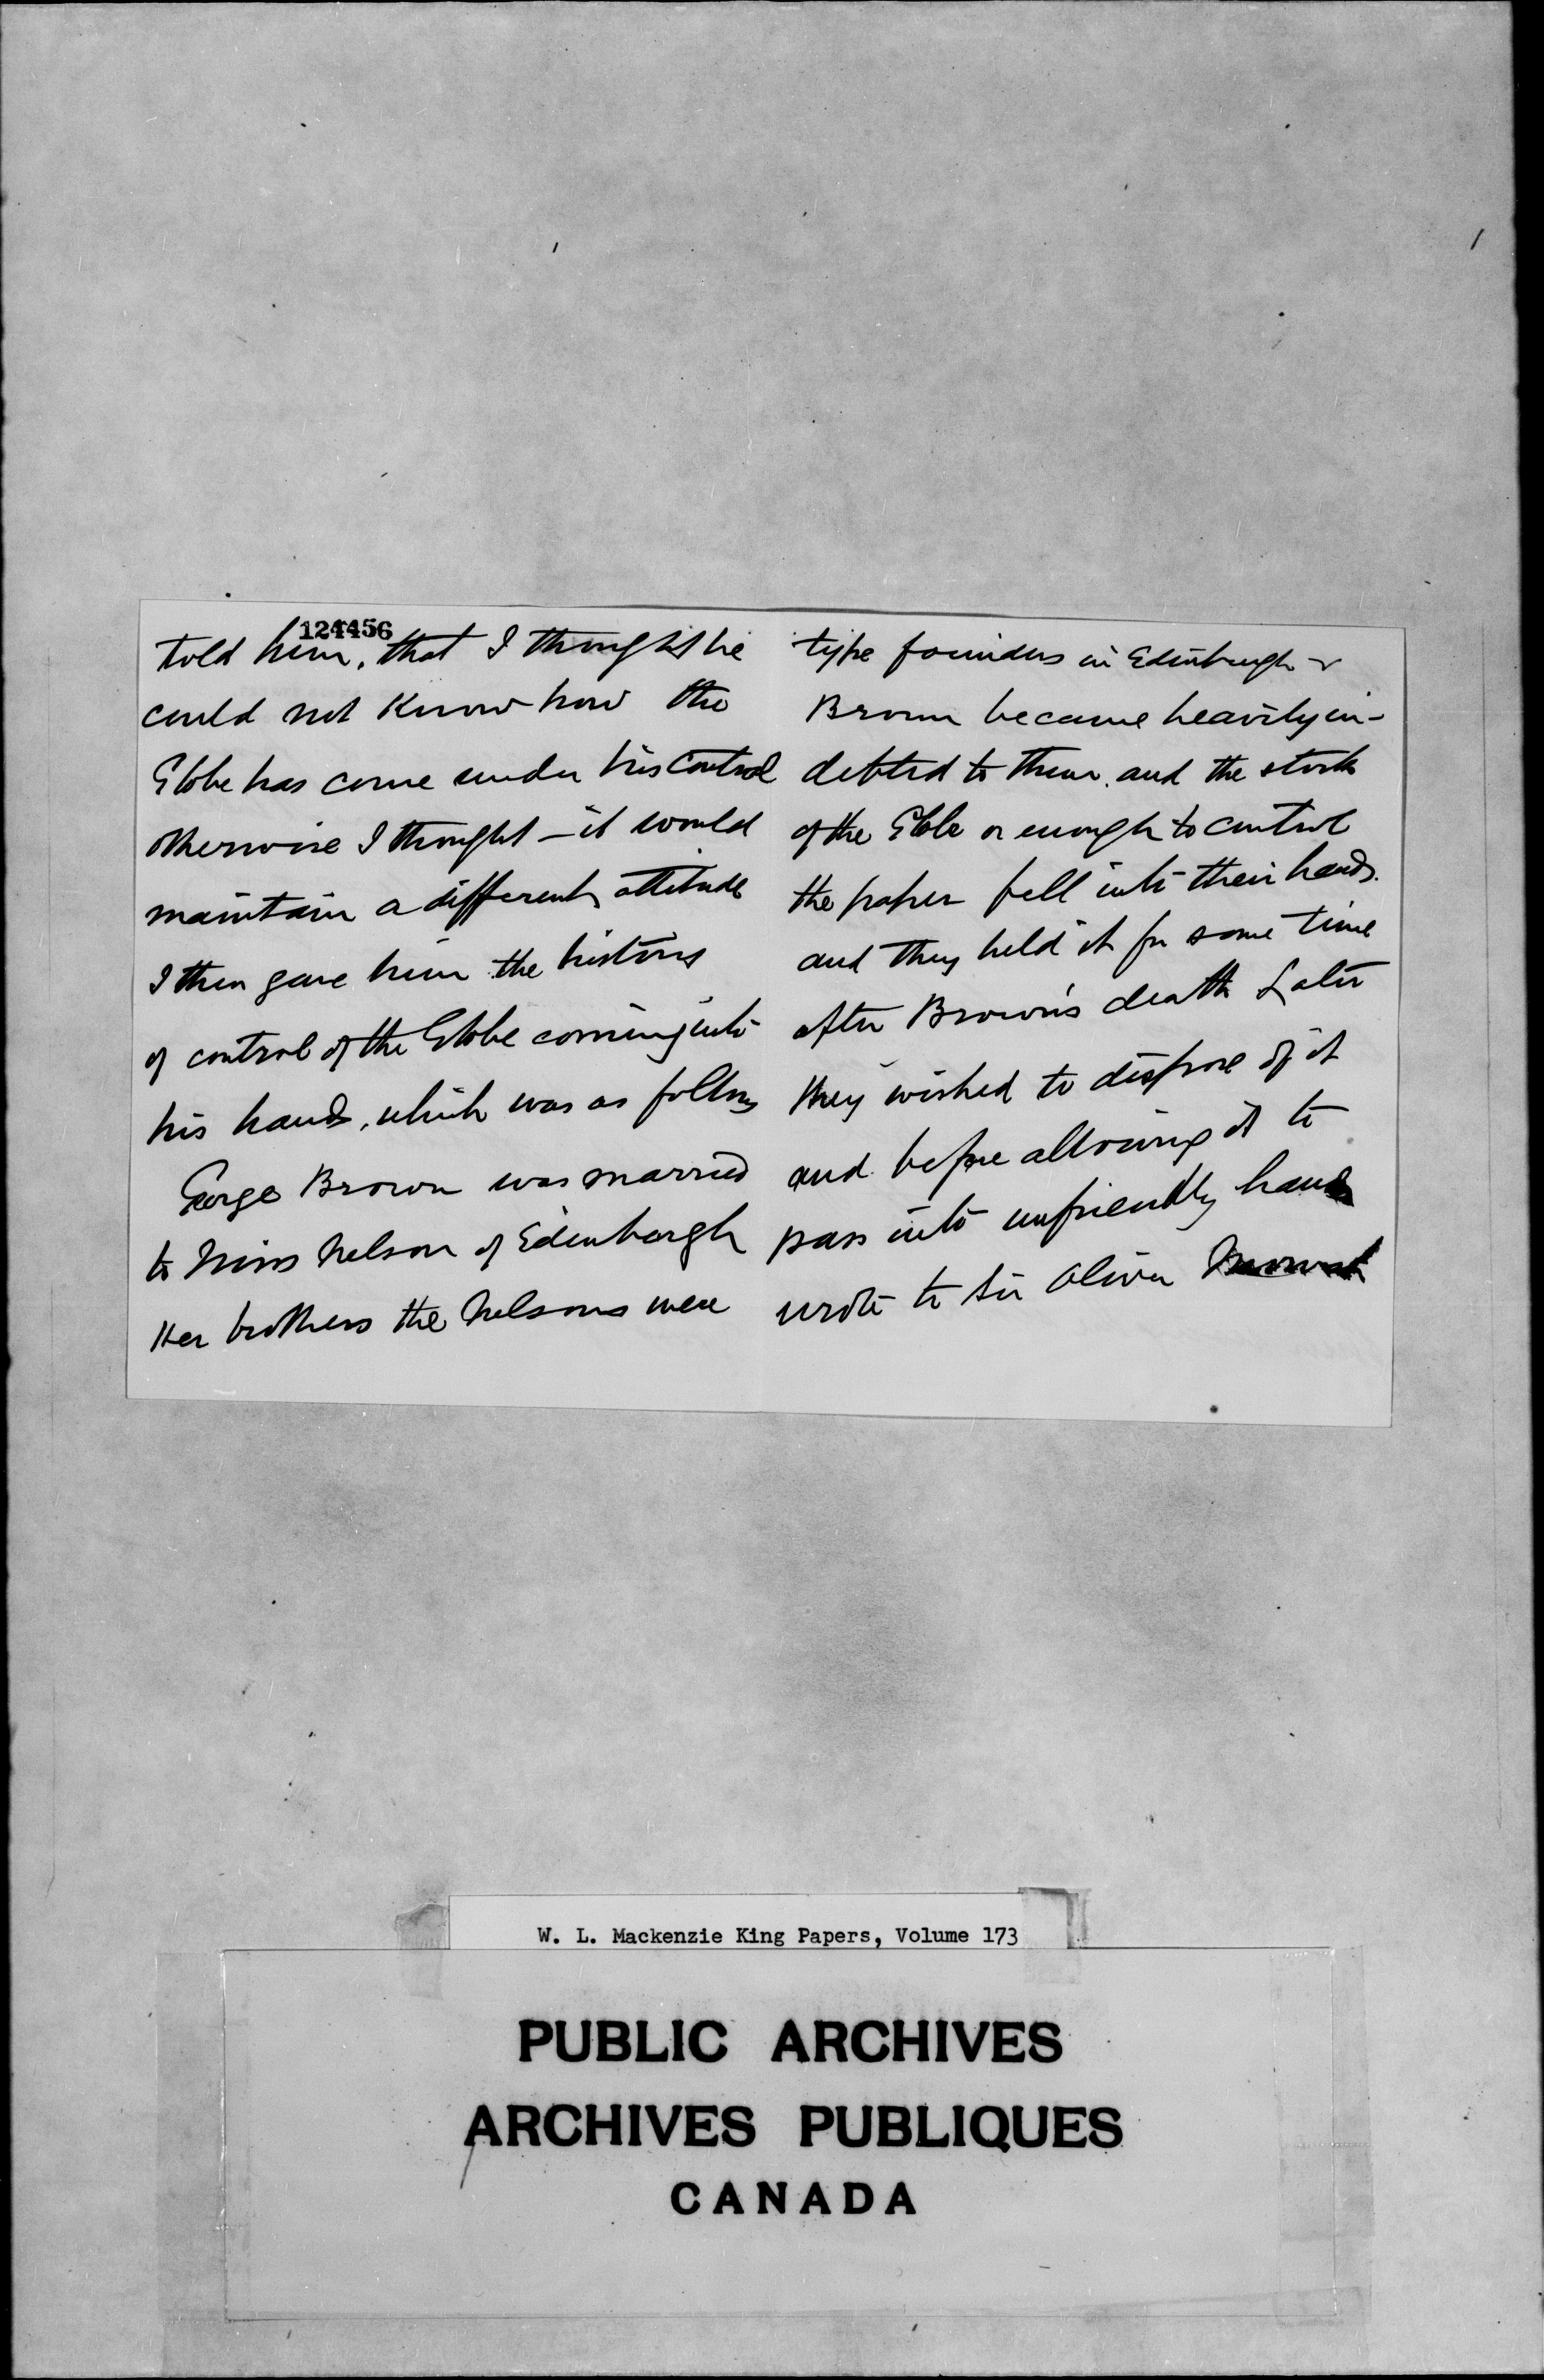 124456
told him, that I thought he
could not know how the
Globe has come under his control
otherwise I thought - it would
maintain a different attitude
I then gave him the history
of control of the Globe coming into
his hands, which was as follows
George Brown was married
to Miss Nelson of Edinborgh
Her brothers the Nelsons were
type founders in Edinburgh &
Brown became heavily in-
debted to them. and the stock
of the Globe or enough to control
the paper fell into their hands.
and they held it for some time
after Brown's death Later
they wished to dispose of it
and before allowing it to
pass into unfriendly hands
wrote to Sir Oliver Mowat
W. L. Mackenzie King Papers, Volume 173
PUBLIC ARCHIVES
ARCHIVES PUBLIQUES
CANADA